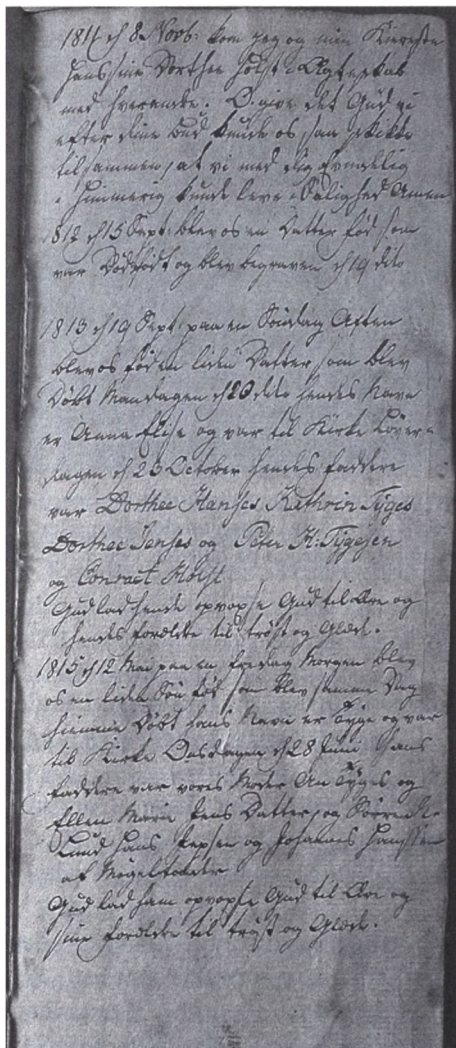 1811 d 8 Novb: kom jeg og min Kiereste
Hansine Dorthe Holst i Ægteskab
med hverandre. O. give det Gud vi
efter dine bud kunde os saa skikke
tilsammen, at vi med dig Evindelig
i Himmerig kunde leve i Salighed Amen
1812 d 15 Sept: blev os en Datter fød som
var Dødfødt og blev begraven d 19 dito
1813 d 19 Sept: paa en Søndag Aften
blev os fød en liden Datter som blev
Døbt Mandagen d 20 dito hendes Navn
er Anna Elise og var til Kirke Løver-
dagen d 23 October hendes faddere
var Dorthee Hanses Kathrin Tyges
Dorthee Jenses og Peter H: Tygesen
og Conract Holst
Gud lad hende opvoxe Gud til Ære og
hendes forældre til trøst og Glæde.
1815 d 12 Mai paa en fredag Morgen blev
os en liden Søn fød som blev samme Dag
hiemme Døbt hans Navn er Tyge og var
til Kirke Onsdagen d 28 Juni hans
faddere var vores Moder An Tyges og
Ellen Marie Jens Datter, og
Lund Hans Jepsen og Johannes Hanssen
af Møgeltonder
Gud lad ham opvoxe Gud til Ære og
sine forældre til trøst og Glæde.